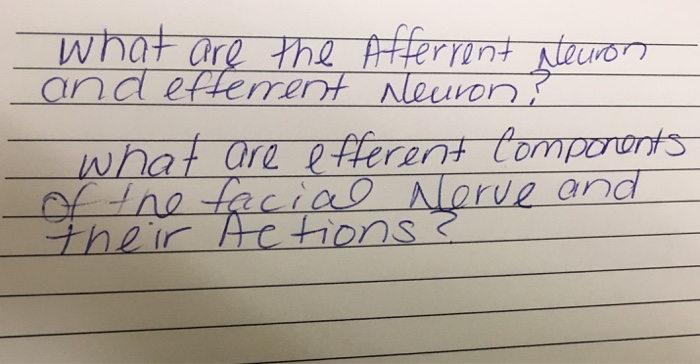 What are the Afferrent Neuron
and efferrent Neuron?
What are efferent Components
of the facial Nerve and
their Actions?